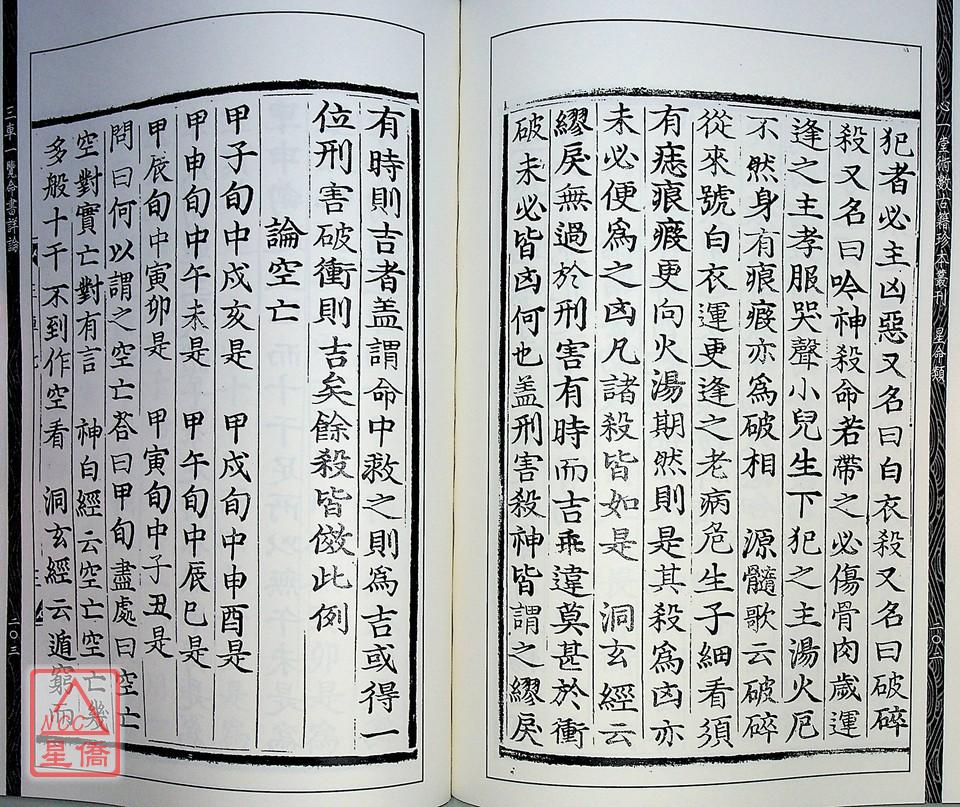 心一堂術數古籍珍本叢刊 星命類
二〇二
犯者必主凶惡又名曰白衣殺又名曰破碎
殺又名曰吟神殺命若帶之必傷骨肉歲運
逢之主孝服哭聲小兒生下犯之主湯火厄
不然身有痕瘕亦為破相 源髓歌云破碎
從來號白衣運更逢之老病危生子細看須
有痣痕瘕更向火湯期然則是其殺為凶亦
未必便為之凶凡諸殺皆如是 洞玄經云
繆戾無過於刑害有時而吉乖違莫甚於衝
破未必皆凶何也盖刑害殺神皆謂之繆戾
有時則吉者盖謂命中救之則為吉或得一
位刑害破衝則吉矣餘殺皆倣此例
論空亡
甲子旬中戌亥是 甲戌旬中申酉是
甲申旬中午未是 甲午旬中辰巳是
甲辰旬中寅卯是 甲寅旬中子丑是
問曰何以謂之空亡荅曰甲旬盡處曰空亡
空對實亡對有言 神白經云空亡空亡幾
多般十干不到作空看 洞玄經云遁窮而
三車一覽命書詳論
二〇三
NCC
星僑